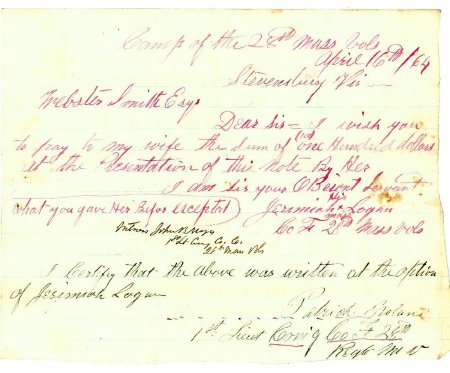 Camp of the 28th Mass Vols
April 16th / 64
Stevensburg Vir
Webster Smith Esqr
Dear Sir = I wish you
to pay to my wife the Sum of (100) one Hundred dollars
at the Presentation of this Note By Her
I am sir your OBeient Servant
(what you gave Her Before excepted) Jerimiah his x mark Logan
Co F 28th Mass Vols
Witness John B
1st Lt Comg Co.
28th Mass Vols
I Certify that the above was written at the option
of Jerimiah Logan
Patrick Nolan
1st Lieut Comg Co F 28th
Regt M V